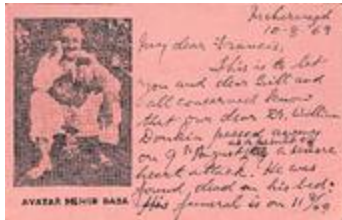 10-8-69
My dear Francis,
This is to let
you and dear Bill and
all concerned know
that our dear Dr. William
Donkin passed away
on 9th August as a result of
a severe
heart attack. He was
found dead on his bed.
His funeral is on 11/8/69
AVATAR MEHER BABA